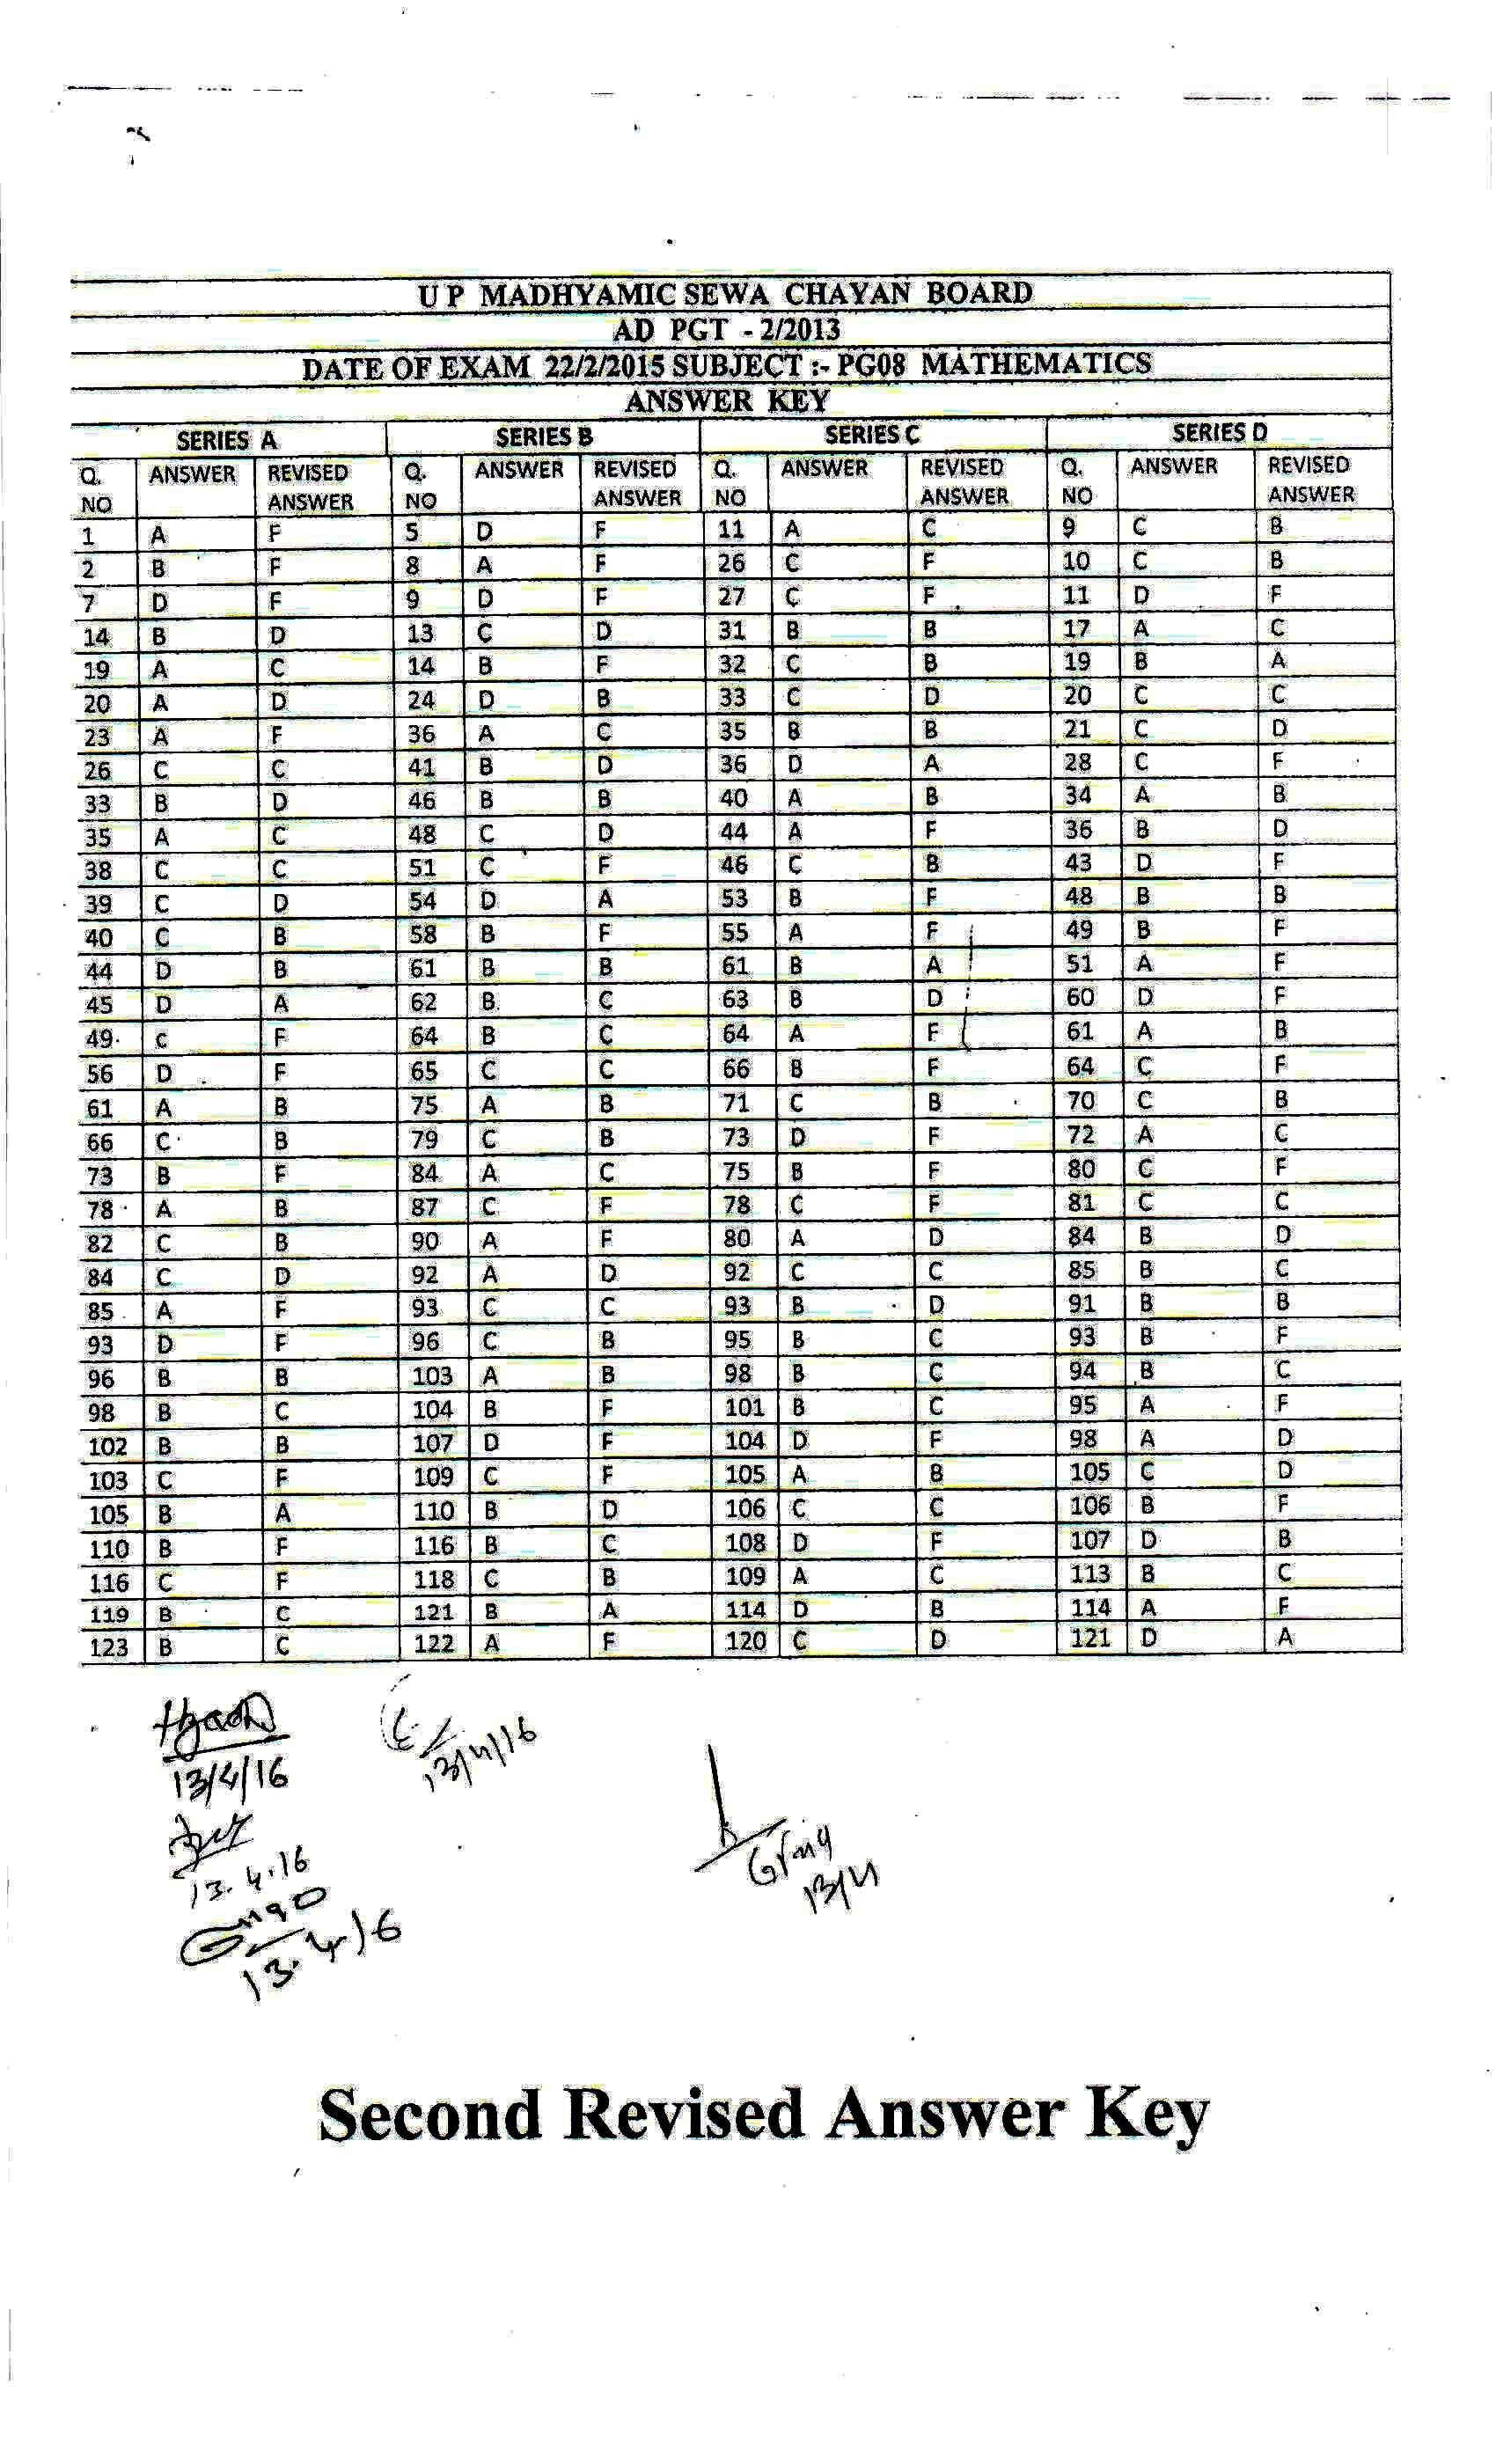 U P MADHYAMIC SEWA CHAYAN BOARD
AD PGT - 2/2013
DATE OF EXAM 22/2/2015 SUBJECT :- PG08 MATHEMATICS
ANSWER KEY
SERIES A SERIES B SERIES C SERIES D
Q. NO ANSWER REVISED ANSWER Q. NO ANSWER REVISED ANSWER Q. NO ANSWER REVISED ANSWER Q. NO ANSWER REVISED ANSWER
1 A F 5 D F 11 A C 9 C B
2 B F 8 A F 26 C F 10 C B
7 D F 9 D F 27 C F 11 D F
14 B D 13 C D 31 B B 17 A C
19 A C 14 B F 32 C B 19 B A
20 A D 24 D B 33 C D 20 C C
23 A F 36 A C 35 B B 21 C D
26 C C 41 B D 36 D A 28 C F
33 B D 46 B B 40 A B 34 A B
35 A C 48 C D 44 A F 36 B D
38 C C 51 C F 46 C B 43 D F
39 C D 54 D A 53 B F 48 B B
40 C B 58 B F 55 A F 49 B F
44 D B 61 B B 61 B A 51 A F
45 D A 62 B. C 63 B D 60 D F
49. c F 64 B C 64 A F 61 A B
56 D F 65 C C 66 B F 64 C F
61 A B 75 A B 71 C B 70 C B
66 C B 79 C B 73 D F 72 A C
73 B F 84 A C 75 B F 80 C F
78 A B 87 C F 78 C F 81 C C
82 C B 90 A F 80 A D 84 B D
84 C D 92 A D 92 C C 85 B C
85 A F 93 C C 93 B D 91 B B
93 D F 96 C B 95 B C 93 B F
96 B B 103 A B 98 B C 94 B C
98 B C 104 B F 101 B C 95 A F
102 B B 107 D F 104 D F 98 A D
103 C F 109 C F 105 A B 105 C D
105 B A 110 B D 106 C C 106 B F
110 B F 116 B C 108 D F 107 D B
116 C F 118 C B 109 A C 113 B C
119 B C 121 B A 114 D B 114 A F
123 B C 122 A F 120 C D 121 D A
13/4/16 13/4/16
13.4.16 13/4
13.4.16
Second Revised Answer Key